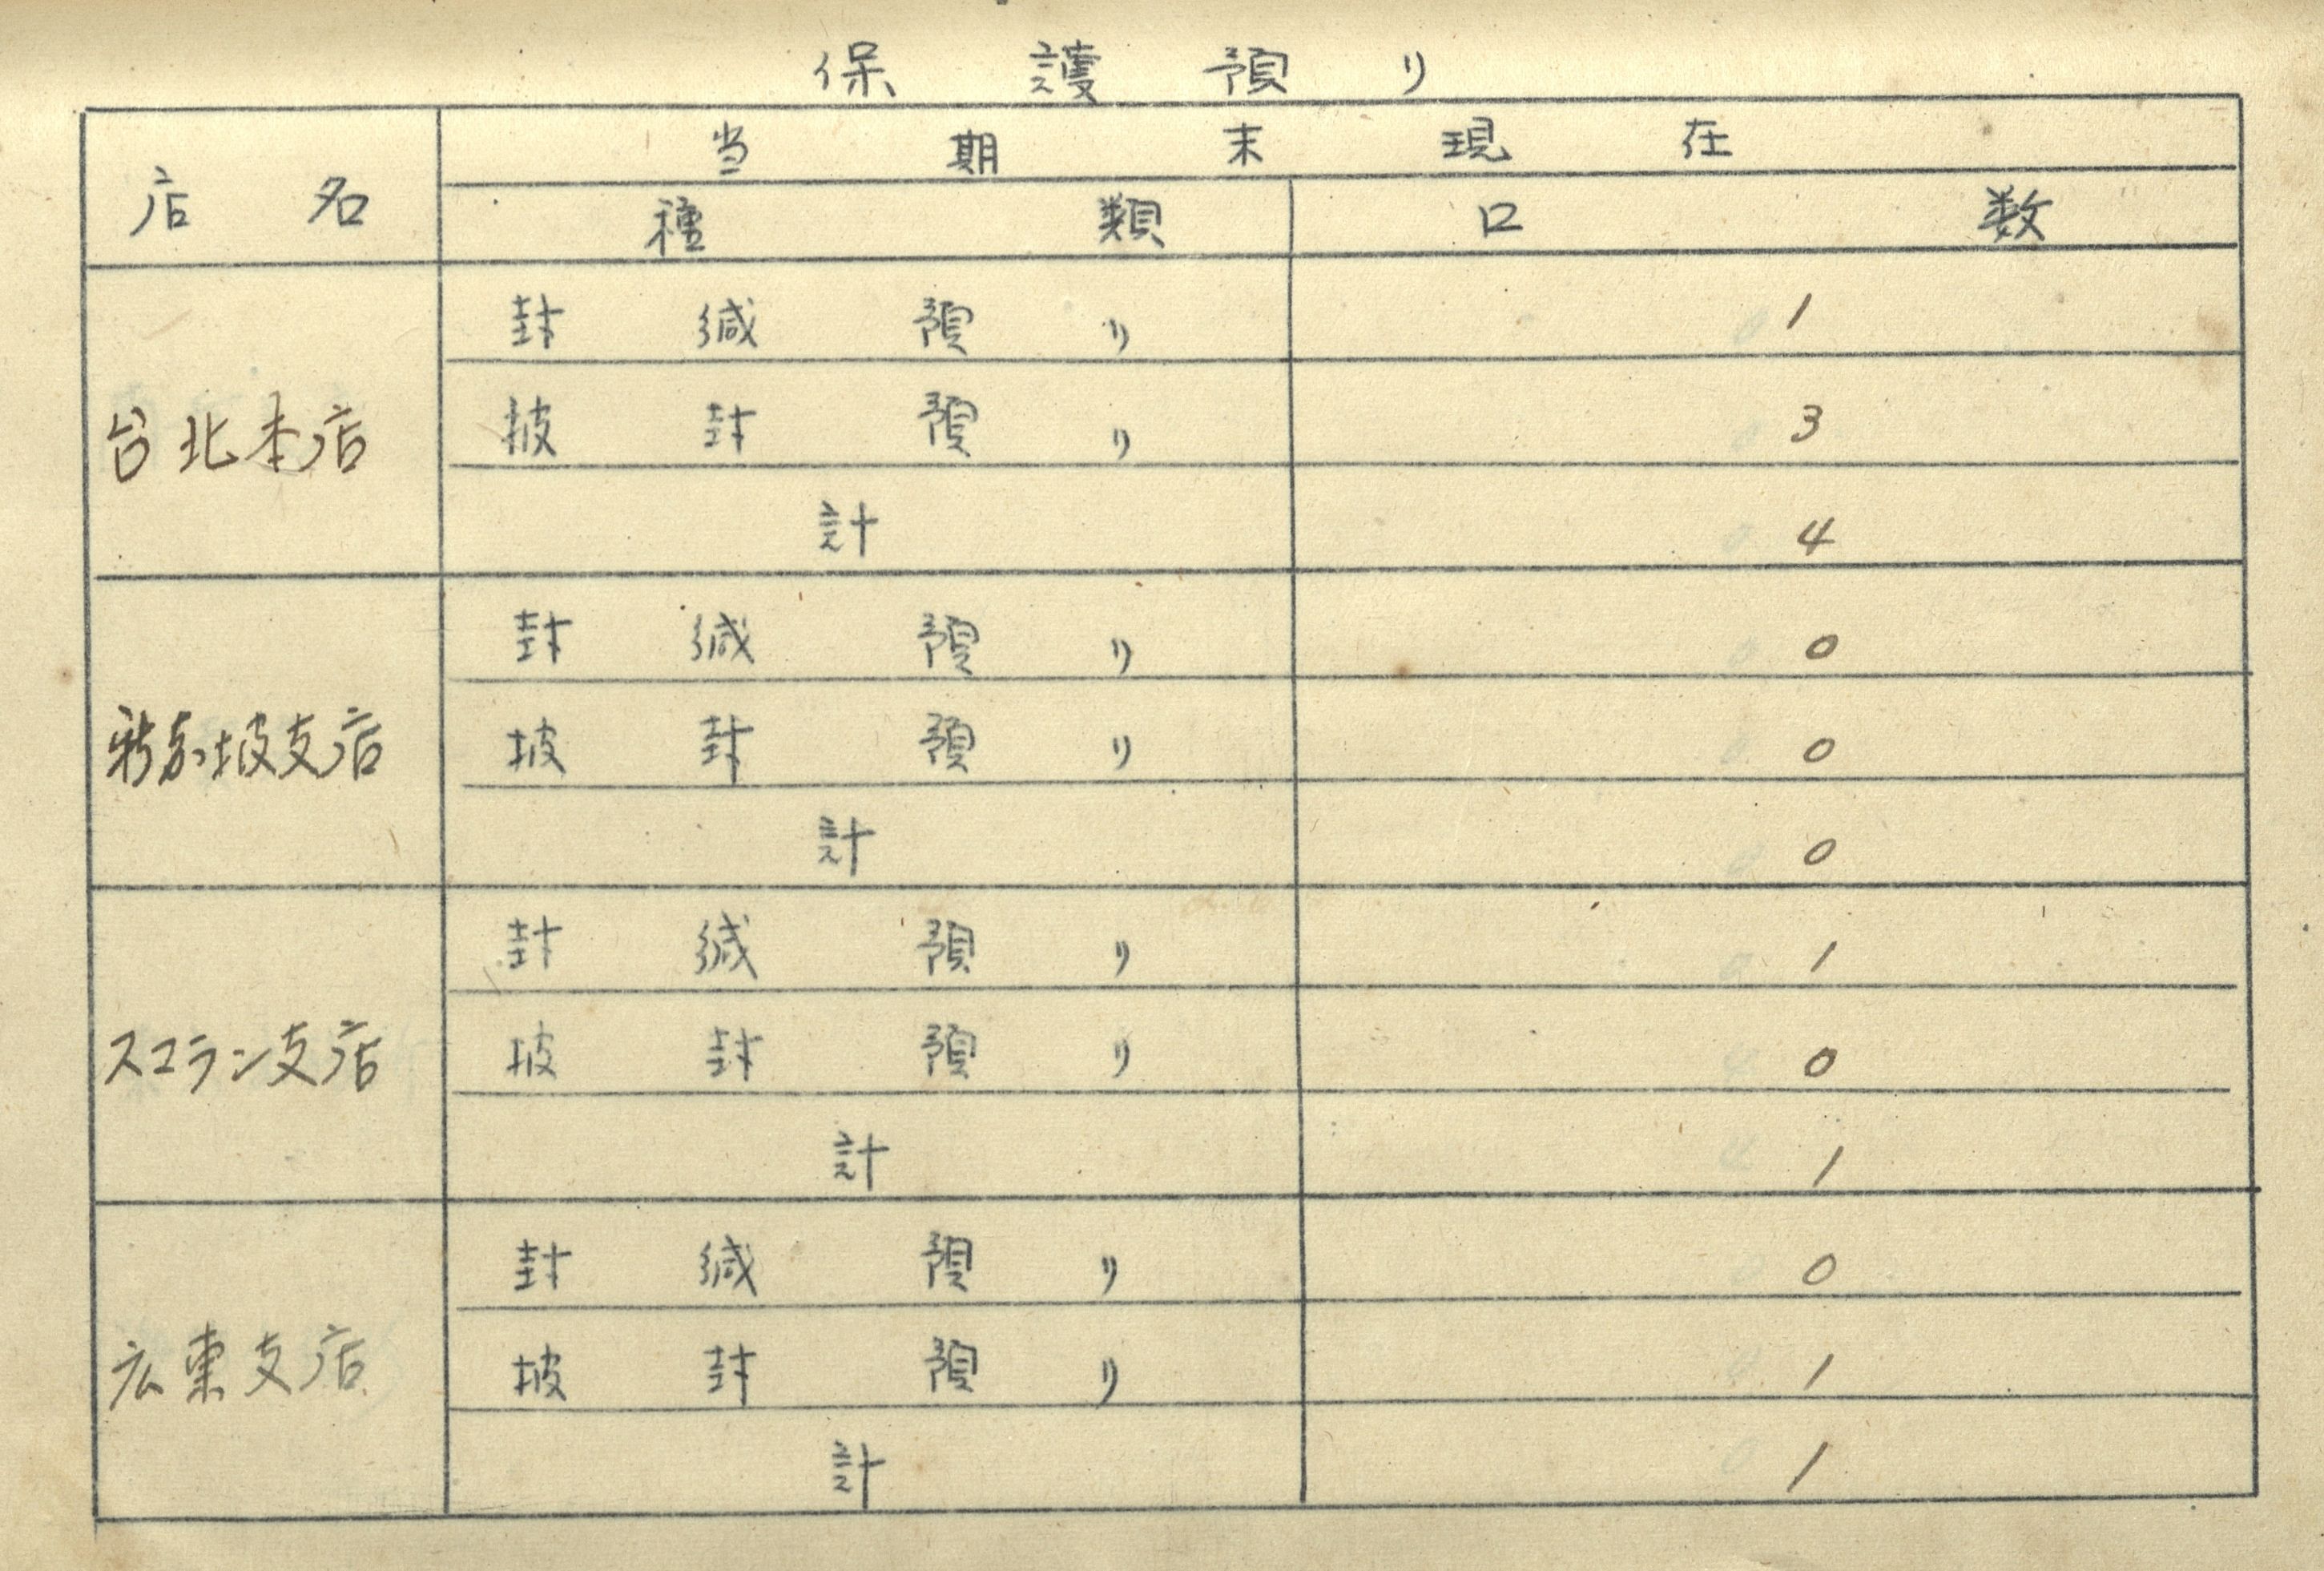 保護預リ
店名 当期末現在
種類 口数
台北本店 封緘預リ 1
披封預リ 3
計 4
新嘉坡支店 封緘預リ 0
披封預リ 0
計 0
スマラン支店 封緘預リ 1
披封預リ 0
計 1
広東支店 封緘預リ 0
披封預リ 1
計 1